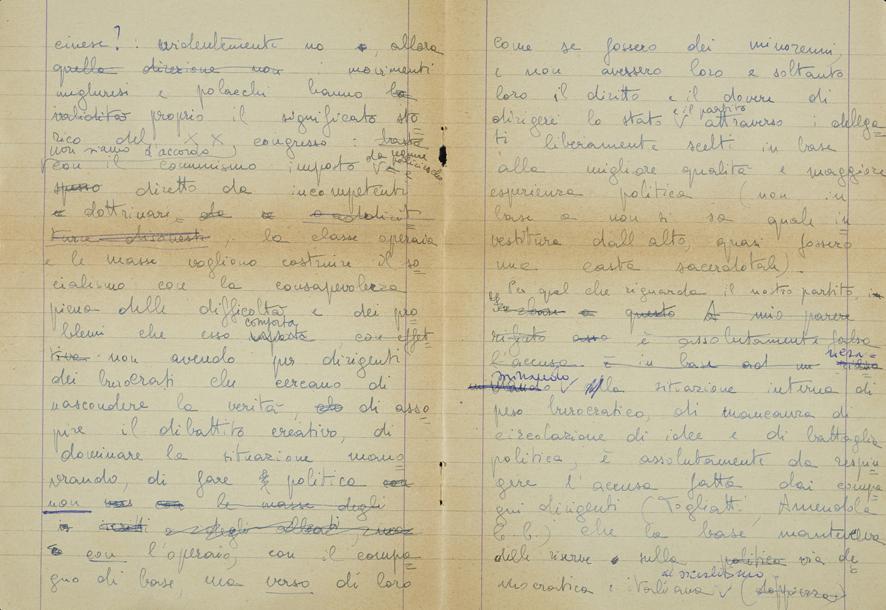 cinese? : evidentemente no, allora
quella direzione non i movimenti
ungheresi e polacchi hanno la
validità proprio il significato sto
rico del XX congresso : basta
non siamo d'accordo
con il comunismo imposto e
spesso diretto da incompetenti
e dottrinari, la classe operaia
e le masse vogliono costruire il so
cialismo con la consapevolezza
piena delle difficoltà e dei pro
blemi che esso comporta
non avendo per dirigenti
dei burocrati che cercano di
nascondere la verità, di asso
pire il dibattito creativo, di
dominare la situazione mano
vrando, di fare politica con
non le masse degli
con l'operaio, con il compa
gno di base, ma verso di loro
come se fossero dei minorenni,
e non avessero loro e soltanto
loro il diritto e il dovere di
dirigere lo stato e il partito attraverso i delega
ti liberamente scelti in base
alla migliore qualità e maggiore
esperienza politica (non in
base a non si sa quale in
vestitura dall'alto, quasi fossero
una casta sacerdotale).
Per quel che riguarda il nostro partito,
questo A mio parere
è assolutamente falsa
l'accusa. E in base ad un
la situazione interna di
peso burocratico, di mancanza di
circolazione di idee e di battaglia
politica, è assolutamente da respin
gere l'accusa fatta dai compa
gni dirigenti (Togliatti Amendola
E.B.) che la base manteneva
delle riserve sulla politica via de
mocratica e italiana al socialismo (doppiezza)